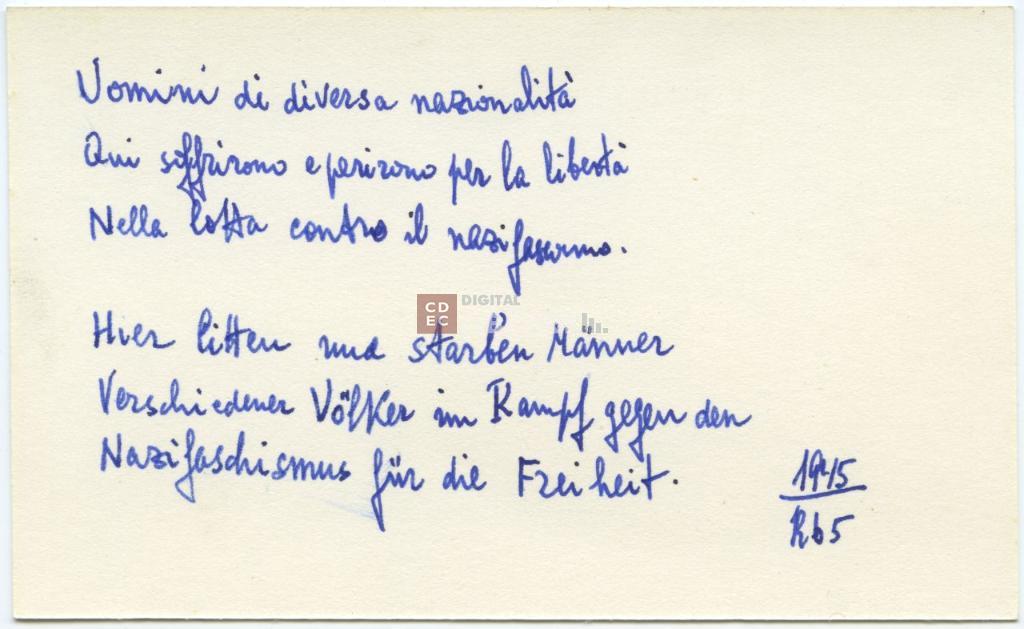 Uomini di diversa nazionalità
Qui soffrirono e perirono per la libertà
Nella lotta contro il nazifascismo.
CD EC DIGITAL
Hier litten und starben Männer
Verschiedener Völker im Kampf gegen den
Nazifaschismus für die Freiheit.